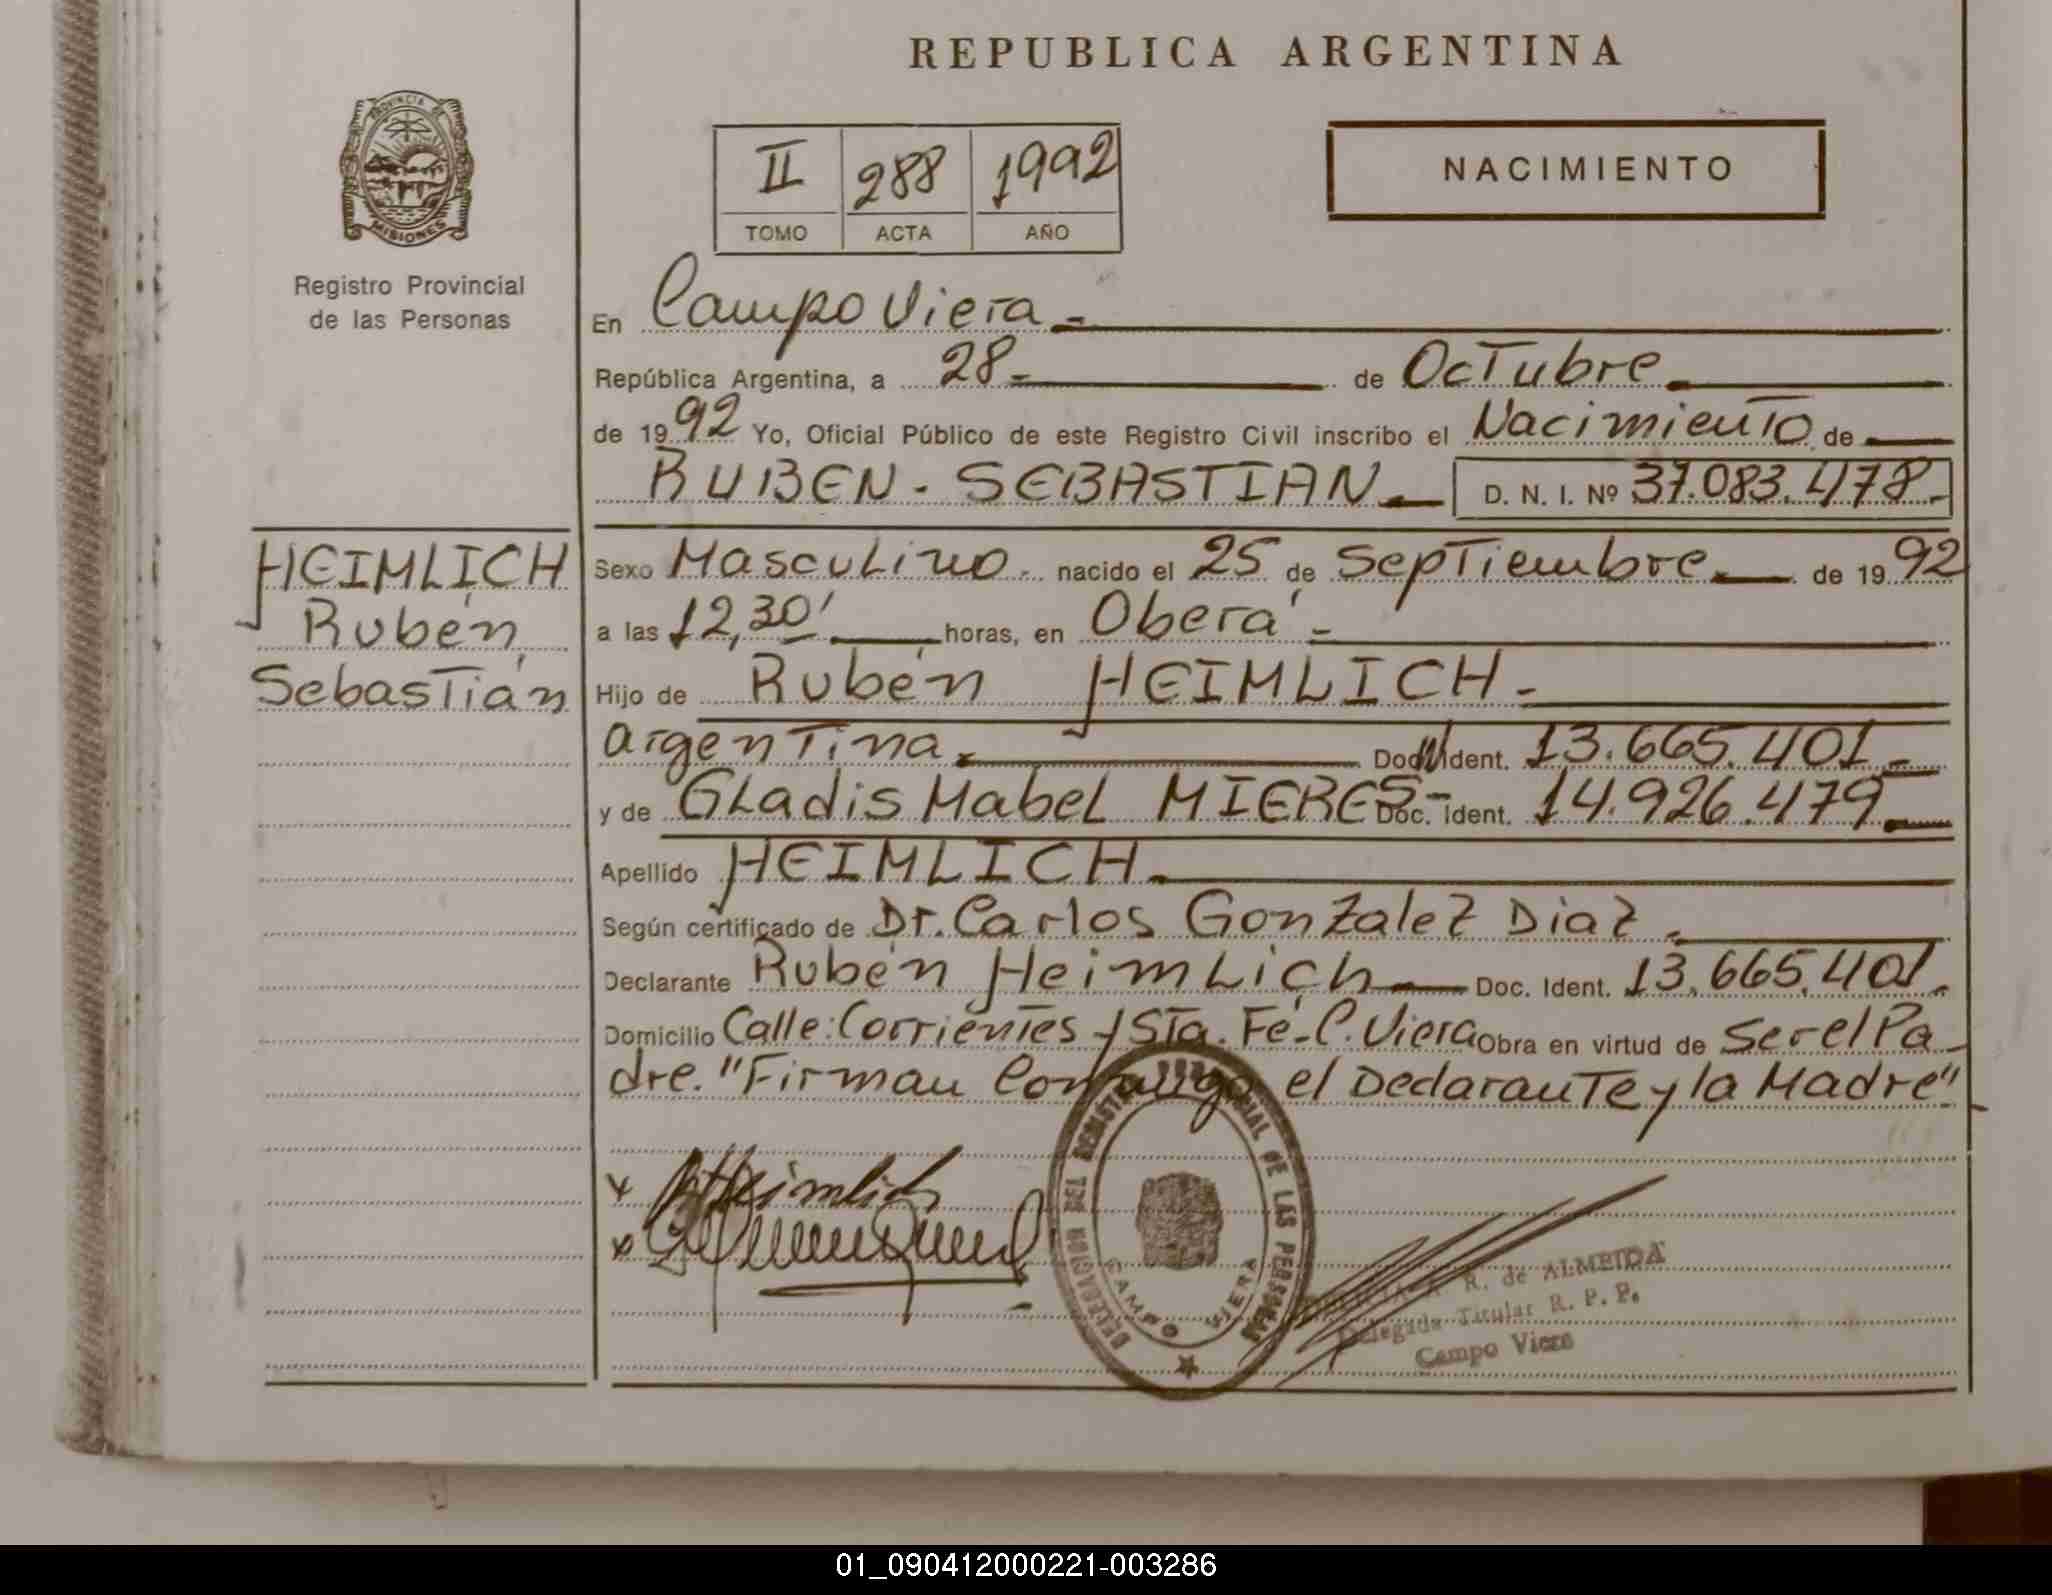 REPUBLICA ARGENTINA
PROVINCIA DE
MISIONES
Registro Provincial
de las Personas
II 288 1992
TOMO ACTA AÑO
NACIMIENTO
En Campo Viera.-
República Argentina, a 28.- de Octubre.
de 1992 Yo, Oficial Público de este Registro Civil inscribo el Nacimiento de
RUBEN - SEBASTIAN.- D. N. I. Nº 37.083.478.-
HEIMLICH
Rubén
Sebastián
Sexo Masculino. nacido el 25 de Septiembre. de 1992
a las 12,30' horas, en Oberá.-
Hijo de Rubén HEIMLICH.-
argentina. Doc. Ident. 13.665.401.-
y de GLadis Mabel MIERES- Doc. Ident. 14.926.479.
Apellido HEIMLICH.
Según certificado de Dr. Carlos Gonzalez Diaz.
Declarante Rubén HeimLich Doc. Ident. 13.665.401.
Domicilio Calle: Corrientes y Sta. Fé-C. Viera Obra en virtud de ser el Pa-
dre. "Firman Conmigo el Declarante y la Madre"
x R Heimlich
x
DELEGACION DEL REGISTRO PROVINCIAL DE LAS PERSONAS
CAMPO VIERA
R. de ALMEIDA
Delegada Titular R. P. P.
Campo Viera
01_090412000221-003286